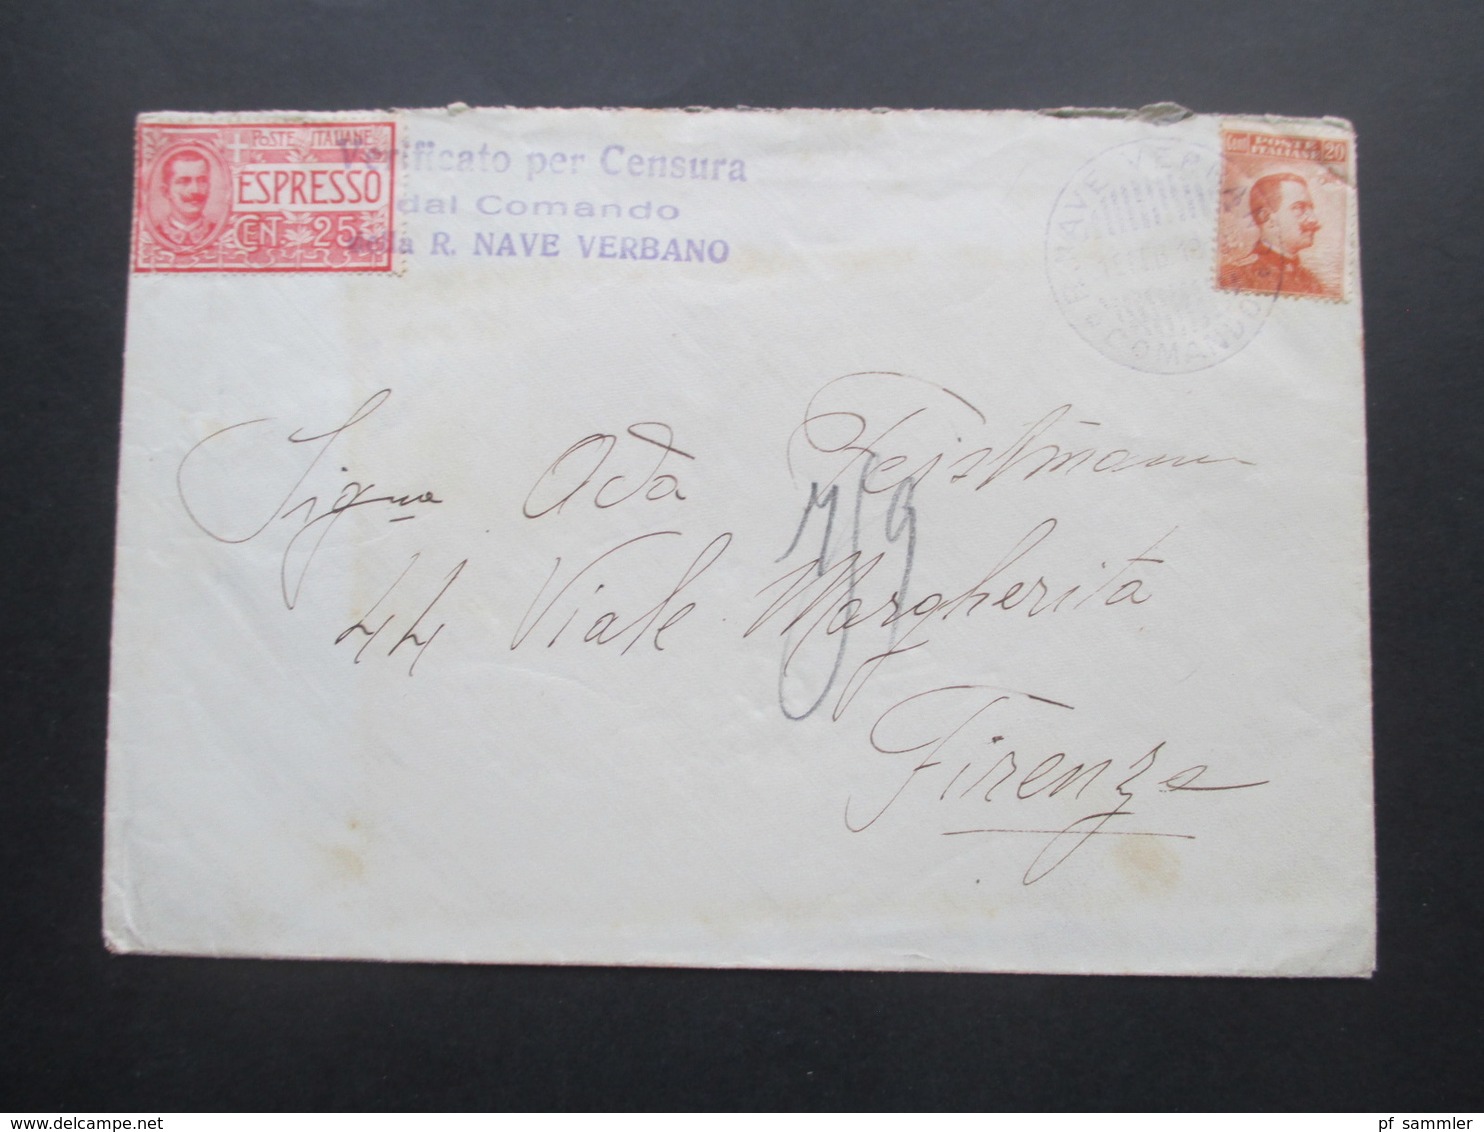 POSTE ITALIANE
ESPRESSO
CENT. 25
Verificato per Censura
dal Comando
della R. NAVE VERBANO
Cent POSTE ITALIANE 20
R. NAVE VERBANO
COMANDO
Sigña Oda Feistmann
44 Viale Margherita
Firenze
pf_sammler